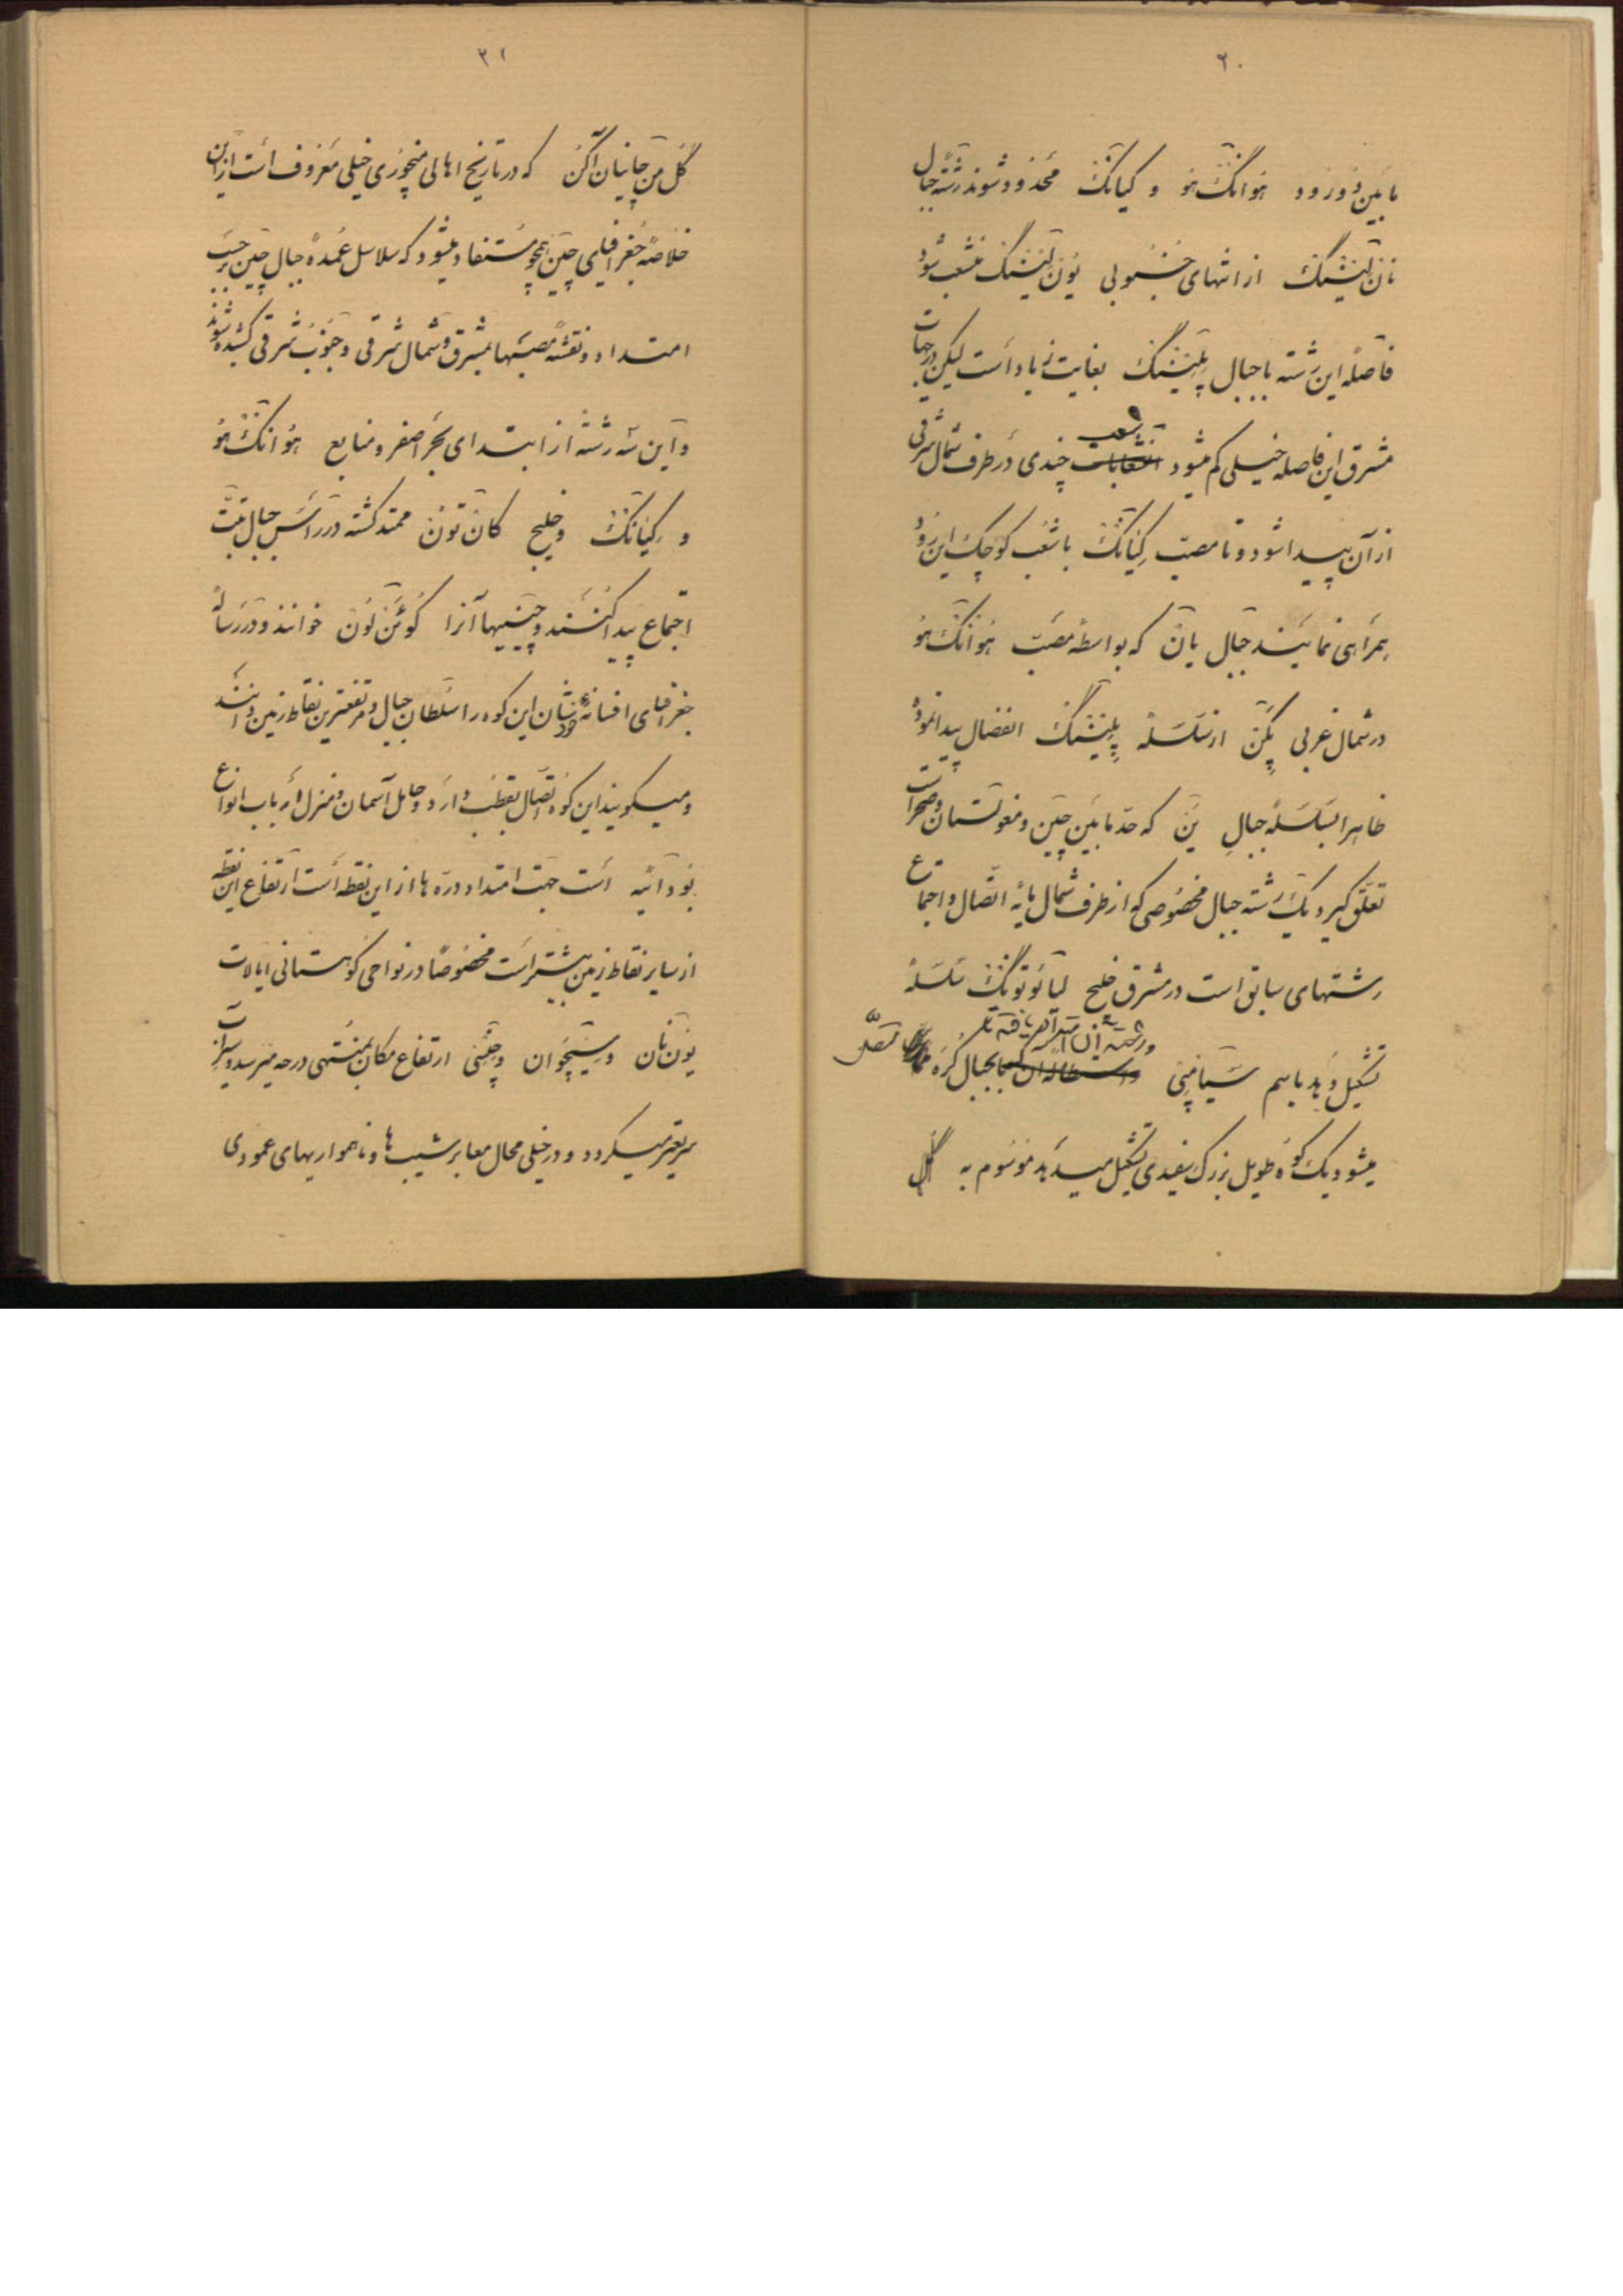 ۲۰
مابین دو رود هوانگ‌هو و کیانگ محدود شوند رشته جبال
نان‌لینگ از انتهای جنوبی یون‌لینگ منشعب شود
فاصله این رشته با جبال پلینگ بغایت زیاد است لیکن در جهات
مشرق این فاصله خیلی کم میشود شعب چندی در طرف شمال شرقی
از آن پیدا شود و تا مصب کیانگ با شعب کوچک این رود
همراهی نمایند جبال یان که بواسطه مصب هوانگ‌هو
در شمال غربی پکن از سلسله پلینگ انفصال پیدا نموده
ظاهرا بسلسله جبال ین که حد مابین چین و مغولستان و صحراست
تعلق گیرد یک رشته جبال مخصوصی که از طرف شمال مایه اتصال و اجتماع
رشتهای سابق است در مشرق خلیج لیائوتونگ سلسله
تشکیل دهد باسم سیاپنی و رشته آن امتداد یافته بجبال کره متصل
میشود یک کوه طویل بزرگ سفیدی تشکیل میدهد موسوم به گل
۲۱
گل من چانیان آکن که در تاریخ اهالی منچوری خیلی معروف است از این
خلاصه جغرافیای چین همچو مستفاد میشود که سلاسل عمده جبال چین بر حسب
امتداد و نقشه مصبها بمشرق و شمال شرقی و جنوب شرقی کشیده شوند
و این سه رشته از ابتدای بحر اصفر و منابع هوانگ‌هو
و کیانگ و خلیج کان‌تون ممتد گشته در رأس جبال تبت
اجتماع پیدا کنند و چینیها آنرا کوئن‌لون خوانند و در رساله
جغرافیای افسانه خودشان این کوه را سلطان جبال و مرتفعترین نقاط زمین دانند
و میگویند این کوه اتصال بقطب دارد و حامل آسمان و منزل ارباب انواع
بودائیه است جهت امتداد دره‌ها از این نقطه است ارتفاع این نقطه
از سایر نقاط زمین بیشتر است مخصوصا در نواحی کوهستانی ایالات
یون‌نان و سیچوان و چنسی ارتفاع مکان بمنتهی درجه میرسد و سیرآب
سریعتر میگردد و در خیلی محال معابر شیب‌ها و ناهمواریهای عمودی